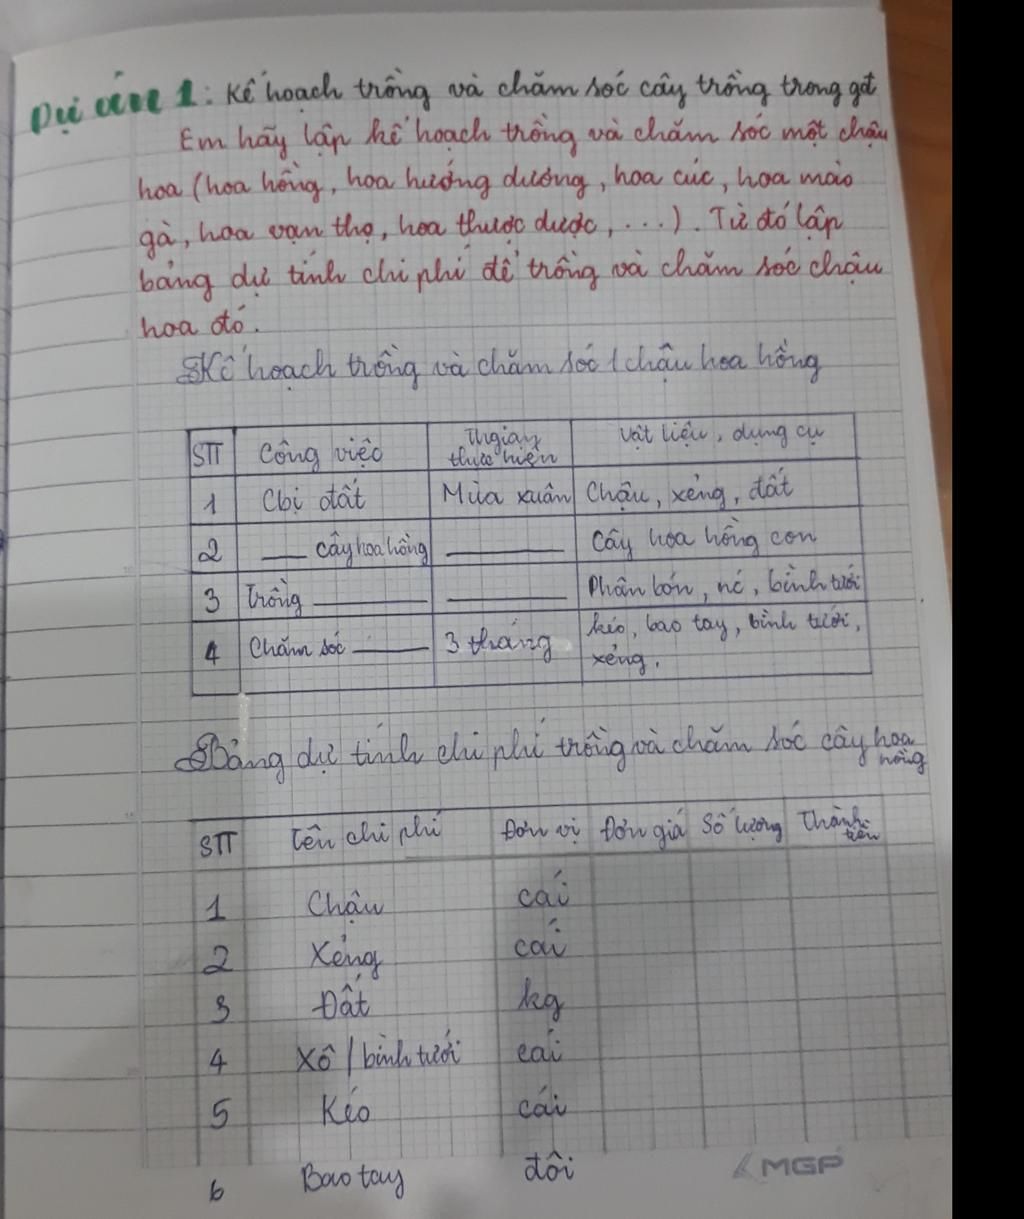 Dự án 1: Kế hoạch trồng và chăm sóc cây trồng trong gđ
Em hãy lập kế hoạch trồng và chăm sóc một chậu
hoa (hoa hồng, hoa hướng dương, hoa cúc, hoa mào
gà, hoa vạn thọ, hoa thược dược, ...). Từ đó lập
bảng dự tính chi phí để trồng và chăm sóc chậu
hoa đó.
Kế hoạch trồng và chăm sóc 1 chậu hoa hồng
STT Công việc Tgian thực hiện Vật liệu, dụng cụ
1 Cbị đất Mùa xuân Chậu, xẻng, đất
2 ___ cây hoa hồng ___ Cây hoa hồng con
3 Trồng ___ ___ Phân bón, nc, bình tưới
4 Chăm sóc ___ 3 tháng kéo, bao tay, bình tưới,
xẻng.
Bảng dự tính chi phí trồng và chăm sóc cây hoa
hồng
STT Tên chi phí Đơn vị Đơn giá Số lượng Thành tiền
1 Chậu cái
2 Xẻng cái
3 Đất kg
4 Xô / bình tưới cái
5 Kéo cái
6 Bao tay đôi
MGP